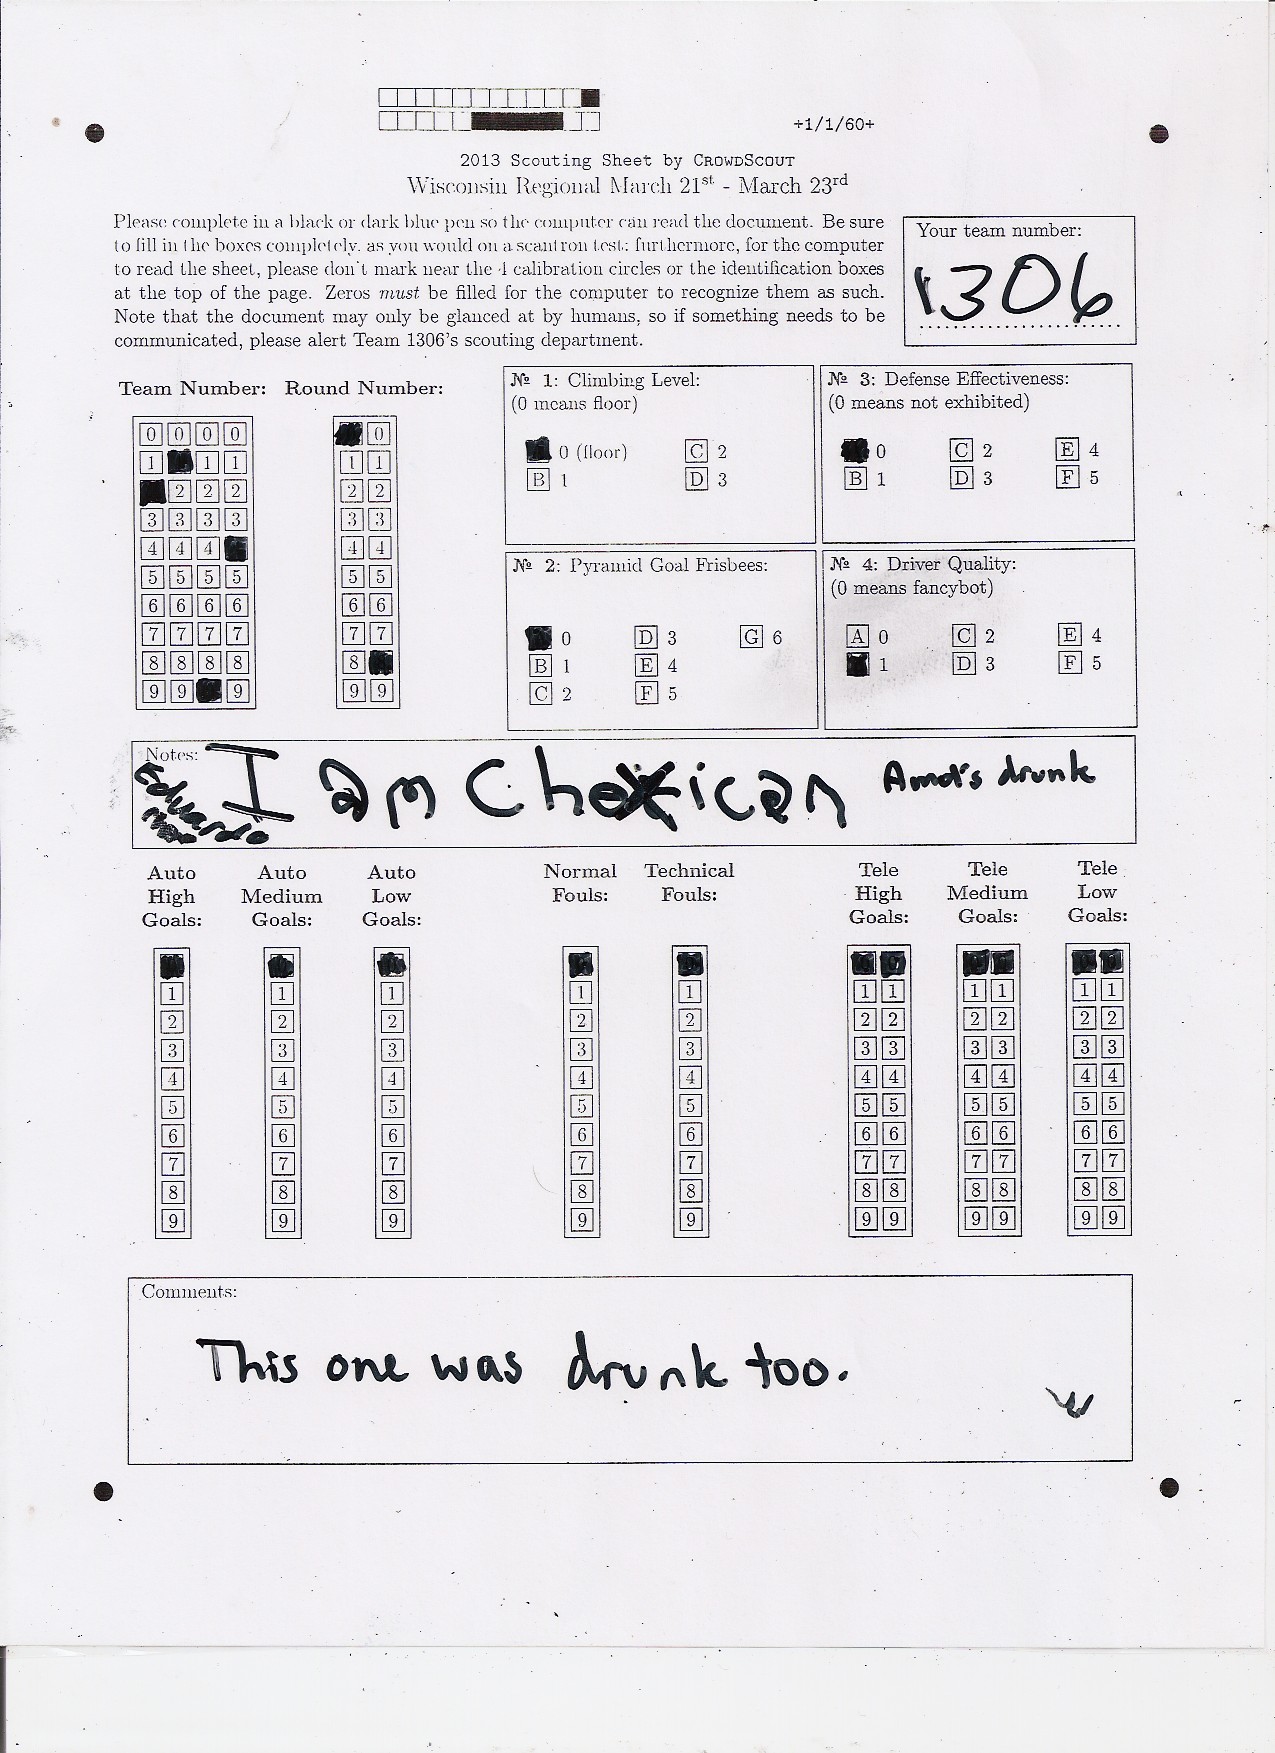 +1/1/60+
2013 Scouting Sheet by CROWDSCOUT
Wisconsin Regional March 21st - March 23rd
Please complete in a black or dark blue pen so the computer can read the document. Be sure
to fill in the boxes completely, as you would on a scantron test; furthermore, for the computer
to read the sheet, please don't mark near the 4 calibration circles or the identification boxes
at the top of the page. Zeros must be filled for the computer to recognize them as such.
Note that the document may only be glanced at by humans, so if something needs to be
communicated, please alert Team 1306's scouting department.
Your team number:
1306
Team Number: Round Number:
0 0 0 0 0
1 1 1 1 1
2 2 2 2 2
3 3 3 3 3 3
4 4 4 4 4
5 5 5 5 5 5
6 6 6 6 6 6
7 7 7 7 7 7
8 8 8 8 8
9 9 9 9 9
№ 1: Climbing Level:
(0 means floor)
0 (floor) C 2
B 1 D 3
№ 3: Defense Effectiveness:
(0 means not exhibited)
0 C 2 E 4
B 1 D 3 F 5
№ 2: Pyramid Goal Frisbees:
0 D 3 G 6
B 1 E 4
C 2 F 5
№ 4: Driver Quality:
(0 means fancybot)
A 0 C 2 E 4
1 D 3 F 5
Notes:
Eduardo
I am Chexican Amol's drunk
Auto High Goals: Auto Medium Goals: Auto Low Goals: Normal Fouls: Technical Fouls: Tele High Goals: Tele Medium Goals: Tele Low Goals:
1 1 1 1 1 1 1 1 1 1 1
2 2 2 2 2 2 2 2 2 2 2
3 3 3 3 3 3 3 3 3 3 3
4 4 4 4 4 4 4 4 4 4 4
5 5 5 5 5 5 5 5 5 5 5
6 6 6 6 6 6 6 6 6 6 6
7 7 7 7 7 7 7 7 7 7 7
8 8 8 8 8 8 8 8 8 8 8
9 9 9 9 9 9 9 9 9 9 9
Comments:
This one was drunk too.